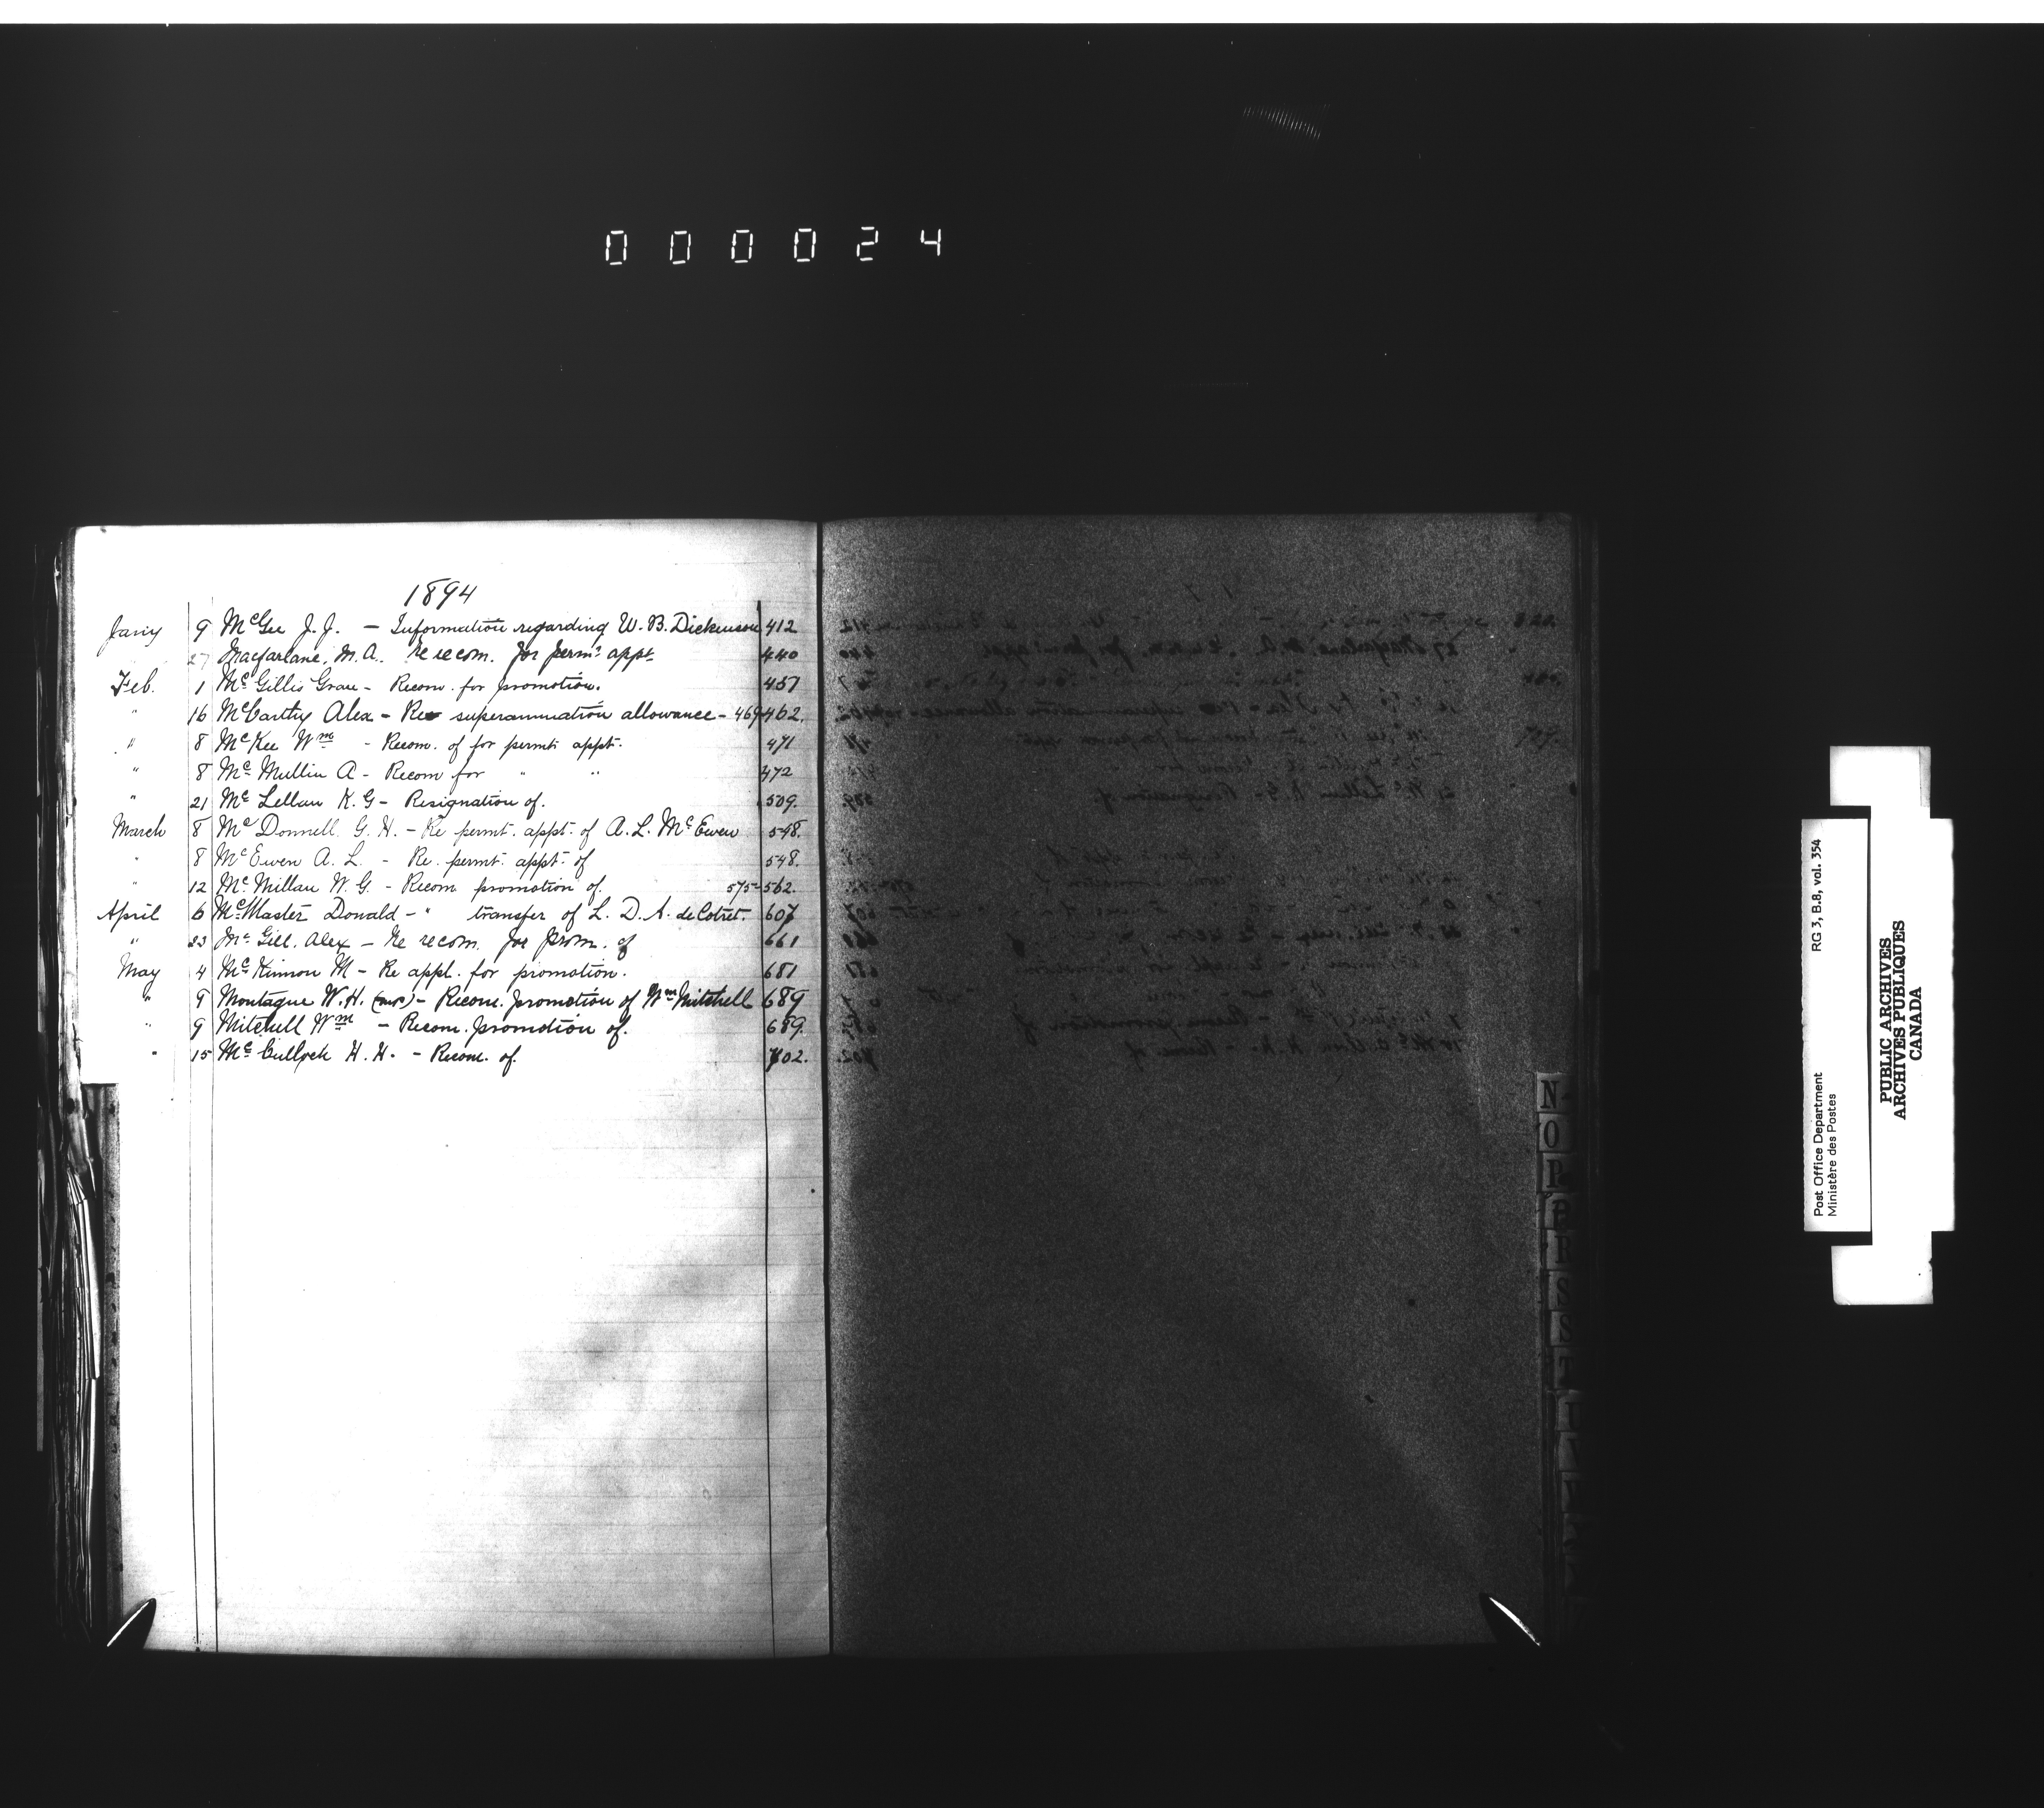 000024
1894
Jany 9 McGee J.J. — Information regarding W. B. Dickenson 412
27 Macfarlane, M.A. re recom. for permt appt 440
Feb. 1 McGillis Grace - Recom. for promotion. 457
" 16 McCarthy Alex - Re superannuation allowance - 469-462.
" 8 McKee Wm - Recom. of for permt appt. 471
" 8 McMullin A - Recom for " " 472
" 21 McLellan K. G - Resignation of. 509.
March 8 McDonnell G. H. - Re permt. appt. of A. L. McEwen 548.
" 8 McEwen A. L. - Re. permt. appt. of 548.
" 12 McMillan W. G. - Recom. promotion of. 575-562.
April 6 McMaster Donald - " transfer of L. D. A. de Cotret. 607
" 23 McGill. Alex - Re recom. for prom. of 661
May 4 McKinnon M - Re appl. for promotion. 681
" 9 Montague W. H. (M.P.) - Recom. promotion of Wm Mitchell 689
" 9 Mitchell Wm - Recom. promotion of. 689.
" 15 McCulloch H. H. - Recom. of. 702.
N
O
P
R
S
T
RG 3, B.8, vol. 354
Post Office Department
Ministère des Postes
PUBLIC ARCHIVES
ARCHIVES PUBLIQUES
CANADA